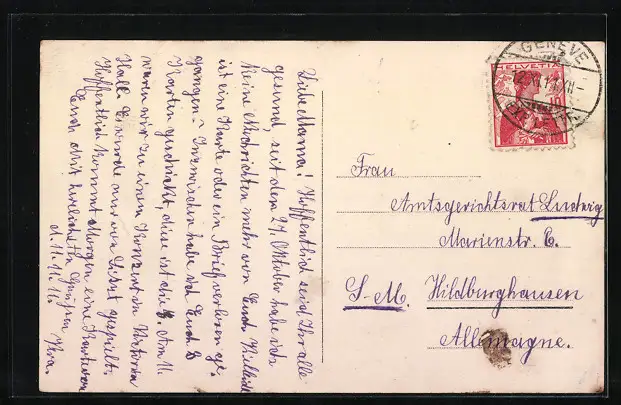 Liebe Mama! Hoffentlich seid Ihr alle
gesund, seit dem 27. Oktober habe ich
keine Nachrichten mehr von Euch. Vielleicht
ist eine Karte oder ein Brief verloren ge-
gangen? Inzwischen habe ich Euch 8
Karten geschickt, diese ist die 9. Am 11.
waren wir zu einem Konzert in Victoria
Hall. Es wurde nur von Liszt gespielt.
Hoffentlich kommt Morgen eine Karte von
Euch. Mit herzlichsten Grüßen
Vera.
GENÈVE
HELVETIA
10
Frau
Amtsgerichtsrat Ludwig
Marienstr. 6.
S-M. Hildburghausen
Allemagne.